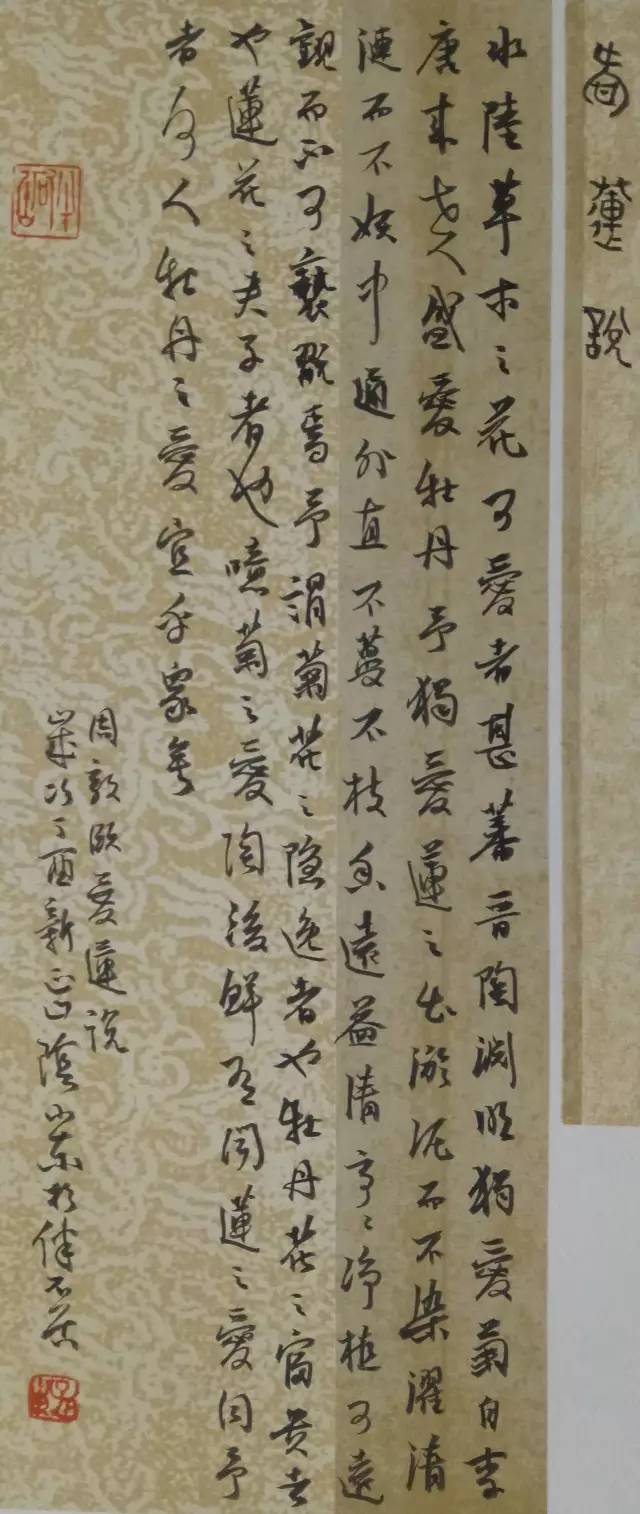 愛蓮說
水陸草木之花可愛者甚蕃晉陶淵明獨愛菊自李
唐來世人盛愛牡丹予獨愛蓮之出淤泥而不染濯清
漣而不妖中通外直不蔓不枝香遠益清亭亭淨植可遠
觀而不可褻翫焉予謂菊花之隱逸者也牡丹花之富貴者
也蓮花之君子者也噫菊之愛陶後鮮有聞蓮之愛同予
者何人牡丹之愛宜乎眾矣
周敦頤愛蓮說
歲次丁酉新正山陰小